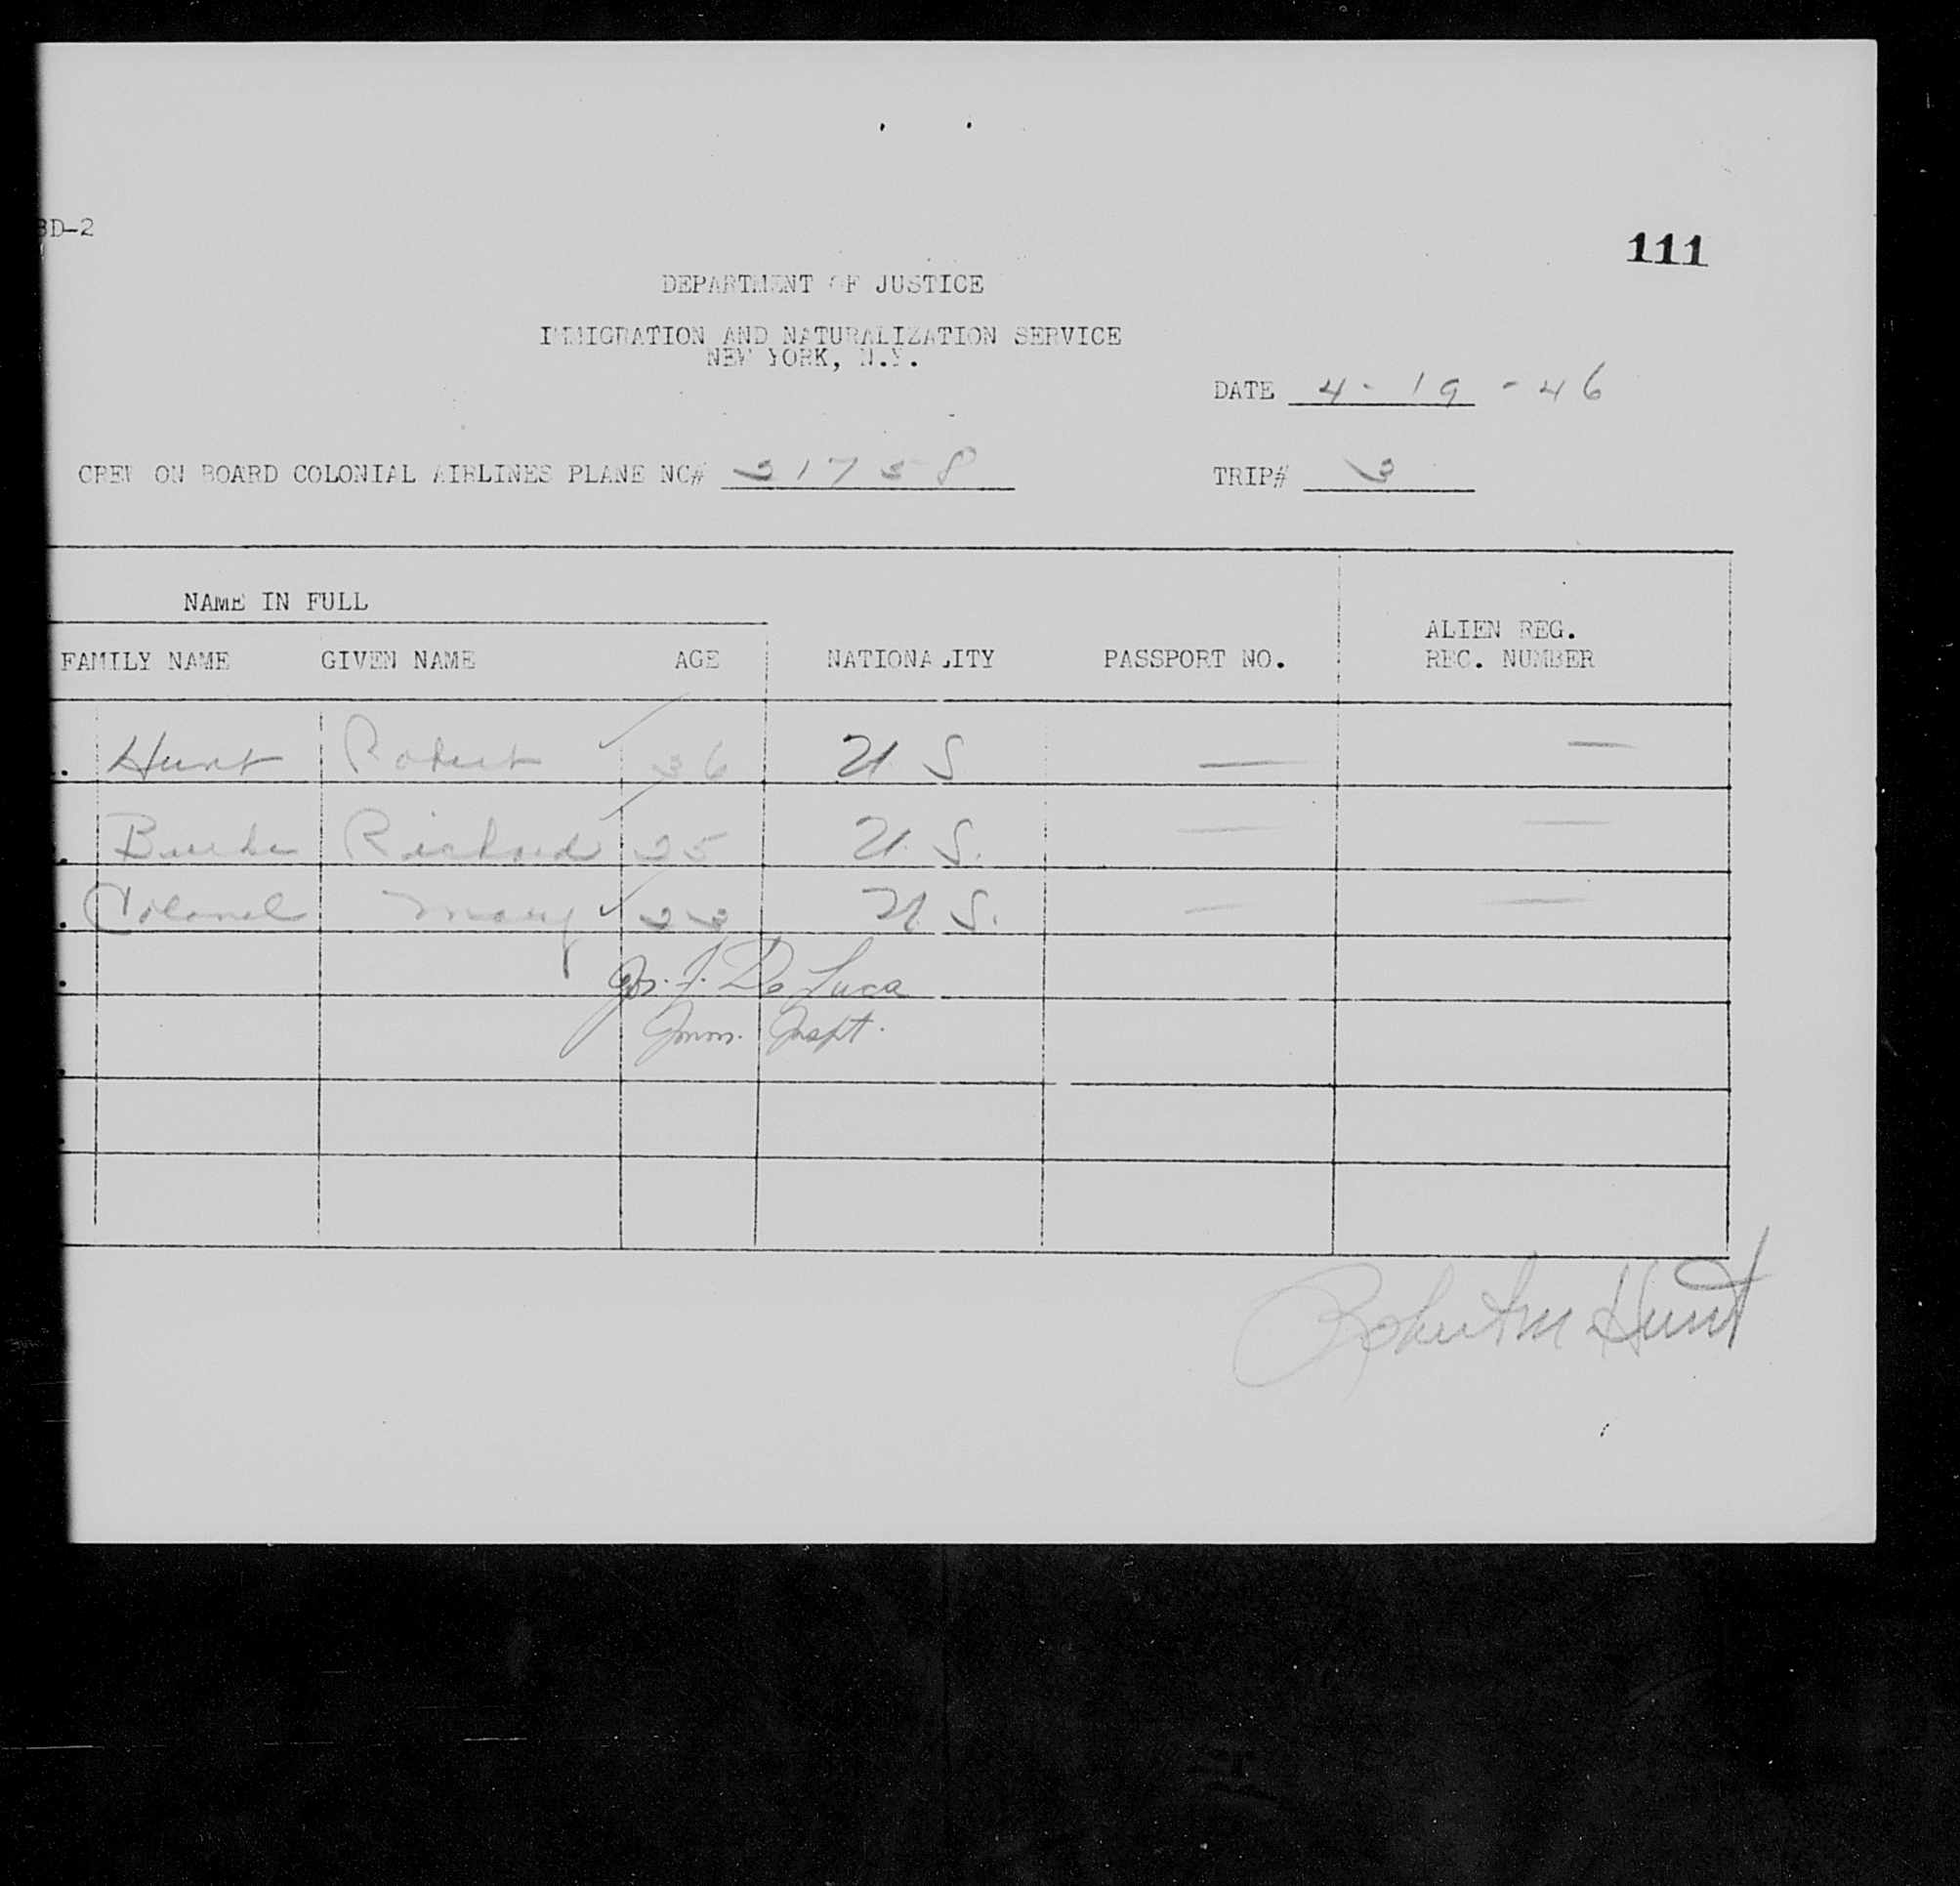 BD-2
111
DEPARTMENT OF JUSTICE
IMMIGRATION AND NATURALIZATION SERVICE
NEW YORK, N.Y.
DATE 4-19-46
CREW ON BOARD COLONIAL AIRLINES PLANE NC# 31758 TRIP# 3
NAME IN FULL
FAMILY NAME GIVEN NAME AGE NATIONALITY PASSPORT NO. ALIEN REG. REC. NUMBER
Hunt Robert 36 U S — —
Burke Richard 25 U. S. — —
Colonel Mary 23 U. S. — —
Jos. J. De Luca
Imm. Inspt.
Robert M Hunt